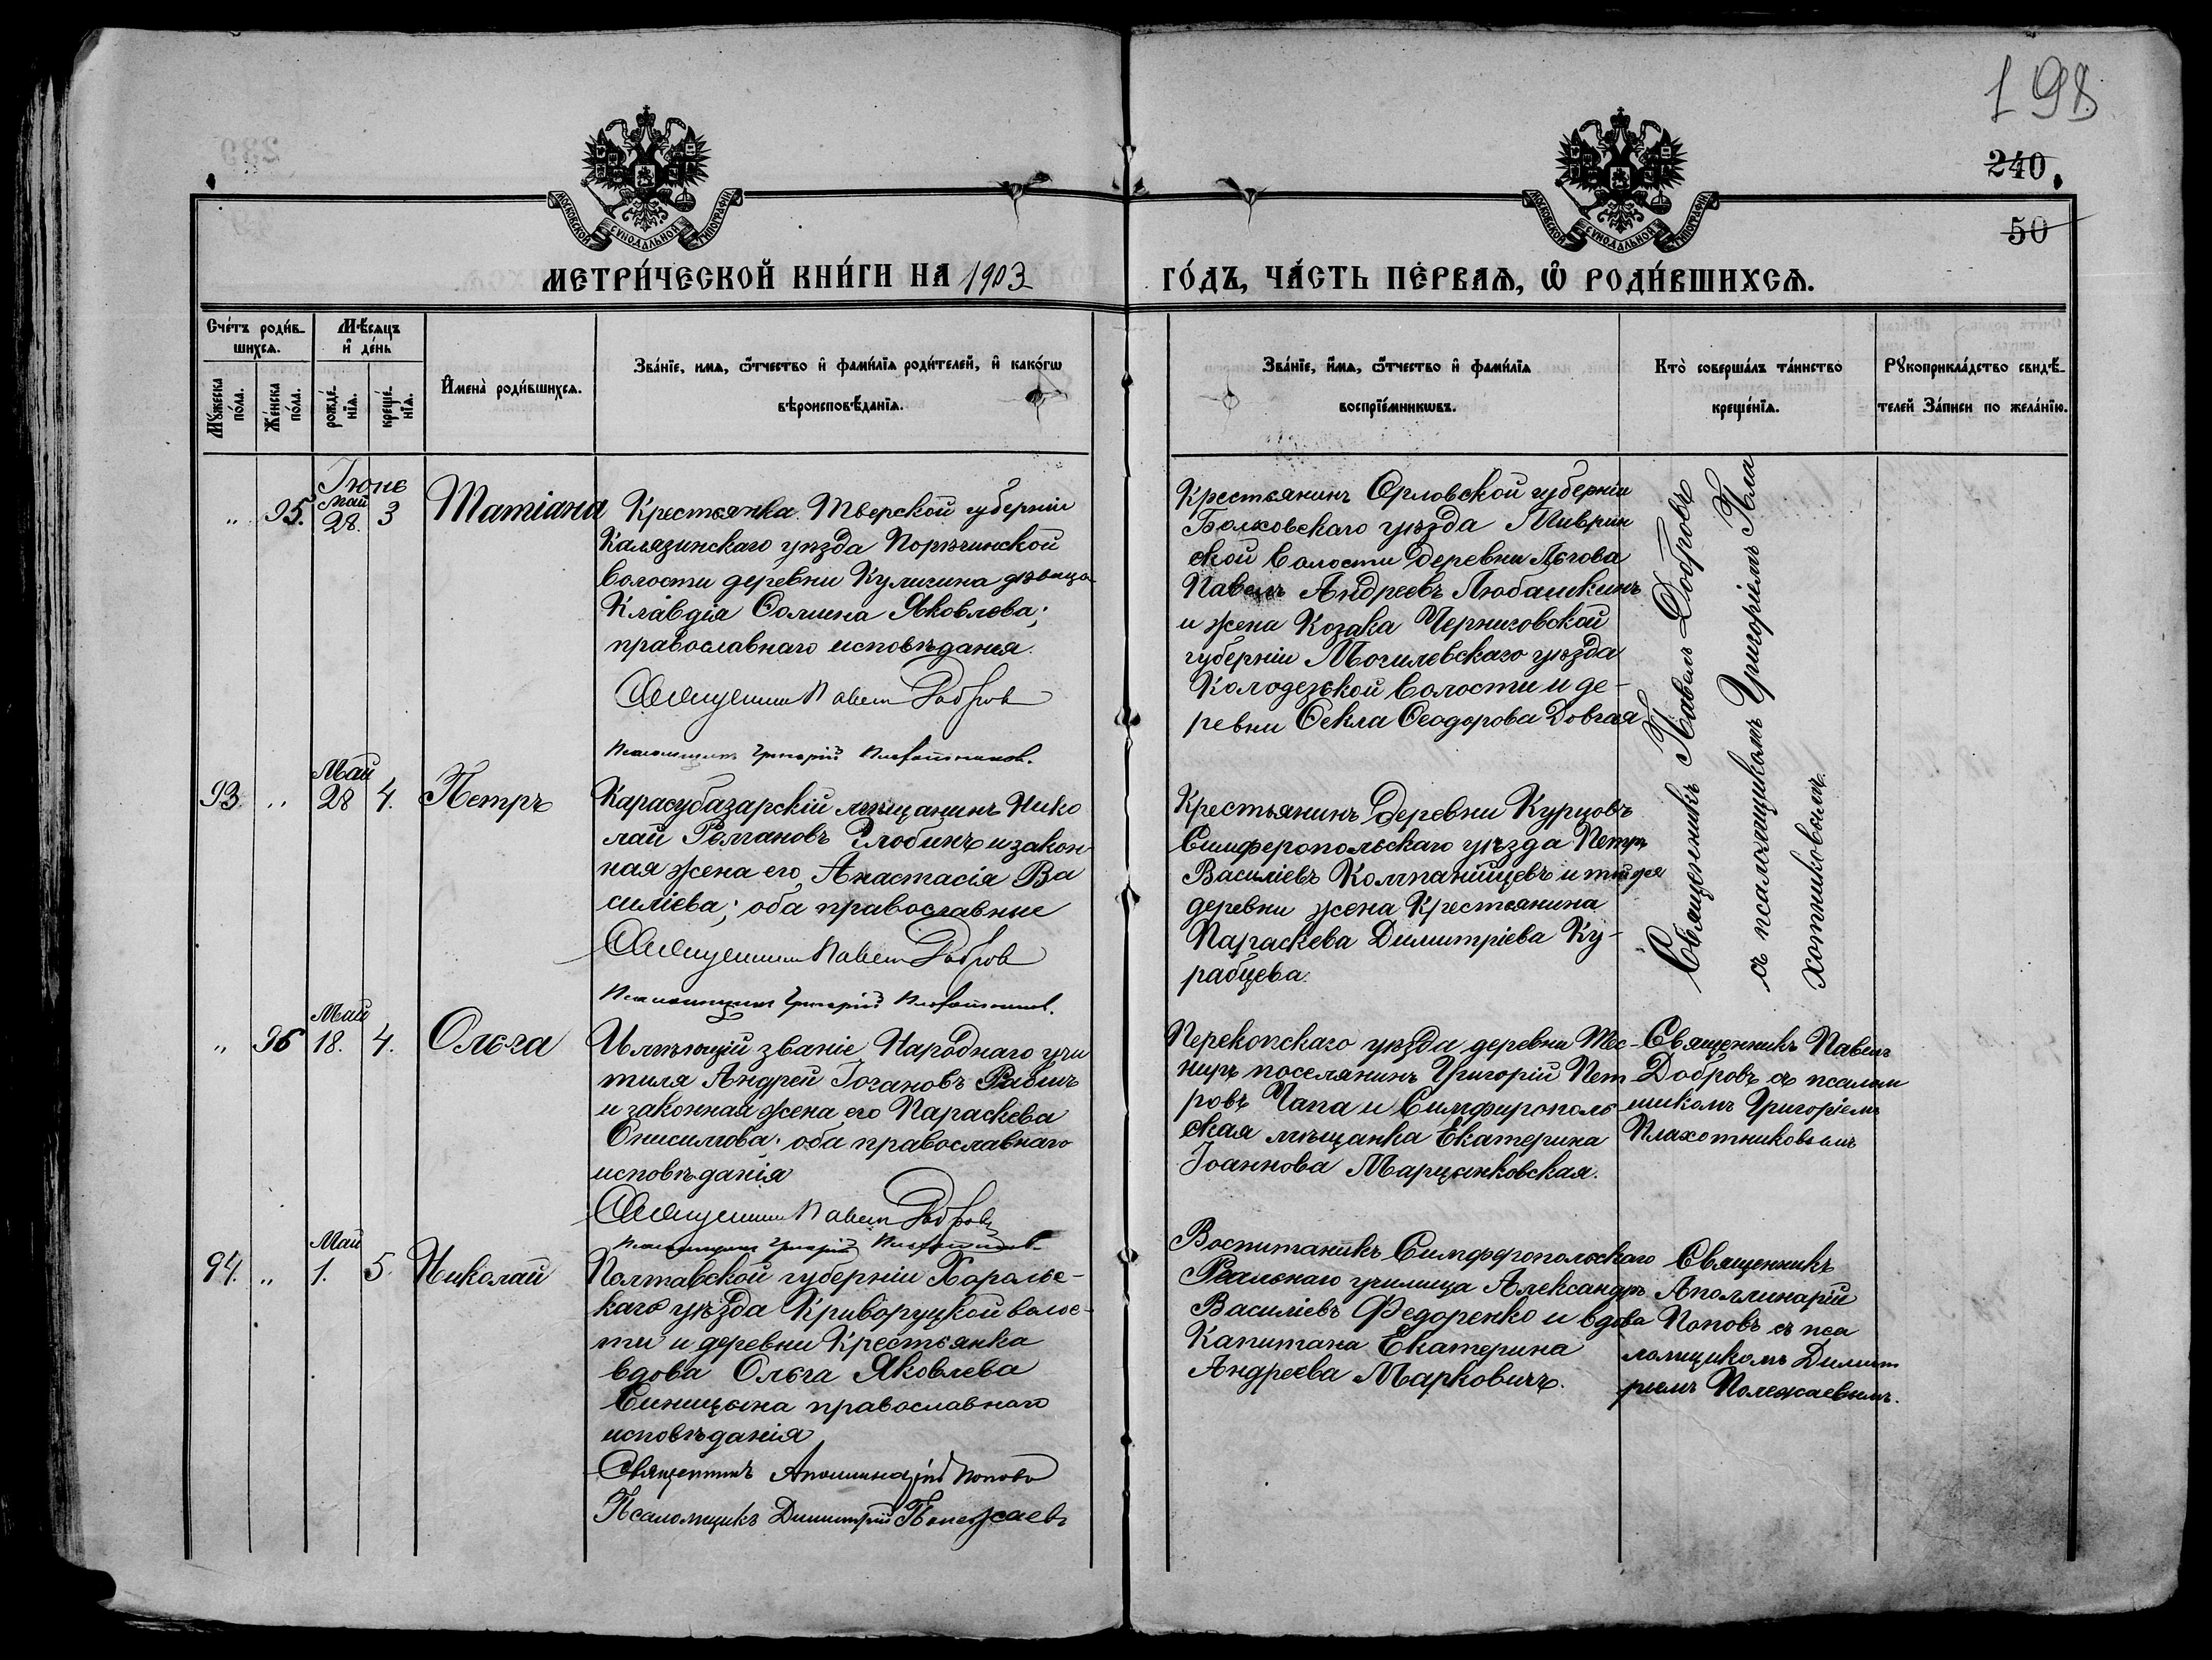 198
240
50
МОСКОВСКОЙ СѴНОДАЛЬНОЙ ТИПОГРАФІИ
МОСКОВСКОЙ СѴНОДАЛЬНОЙ ТИПОГРАФІИ
МЕТРИ́ЧЕСКОЙ КНИ́ГИ НА 1903
ГО́ДЪ, ЧА́СТЬ ПЕ́РВАѦ, Ѡ҆ РОДИ́ВШИХСѦ.
Сче́тъ роди́в-
шихсѧ.
Мꙋ́жеска
по́ла.
Же́нска
по́ла.
Мѣ́сѧцъ
и҆ де́нь
рожде́-
нїѧ.
креще́-
нїѧ.
И҆мена̀ роди́вшихсѧ.
Зва́нїе, имѧ, ѻ҆́тчество и҆ фами́лїѧ роди́телей, и҆ како́гѡ
вѣроисповѣ́данїѧ.
Зва́нїе, и҆́мѧ, ѻ҆́тчество и҆ фами́лїѧ
воспрїе́мникѡвъ.
Кто̀ соверша́лъ та́инство
креще́нїѧ.
Рꙋкоприкла́дство свидѣ́-
телей за́писи по жела́нїю.
„ 95. Іюнь
Май
28. 3
Татіана
Крестьянка Тверской губерніи
Калязинскаго уѣзда Порѣчинской
волости деревни Куличина дѣвица
Клавдія Ѳомина Яковлева;
православнаго исповѣданія.
Священникъ Павелъ Добровъ
Псаломщикъ Григорій Плахотниковъ.
Крестьянинъ Орловской губерніи
Болховскаго уѣзда
ской волости деревни Льгова
Павелъ Андреевъ Любашкинъ
и жена Козака Черниговской
губерніи Могилевскаго уѣзда
Колодезской волости и де-
ревни Ѳекла Ѳеодорова Довгая
Священникъ Павелъ Добровъ
съ псаломщикомъ Григоріемъ Пла
хотниковымъ.
93. „ Май
28 4.
Петръ
Карасубазарскій мѣщанинъ Нико
лай Романовъ Злобинъ и закон
ная жена его Анастасія Ва
силіева; оба православные
Священникъ Павелъ Добровъ
Псаломщикъ Григорій Плахотниковъ.
Крестьянинъ деревни Курцовъ
Симферопольскаго уѣзда Петръ
Василіевъ Компанійцевъ и той же
деревни жена Крестьянина
Параскева Димитріева Ку-
рабцева.
„ 96 Май
18. 4.
Ольга
Имѣющій званіе Народнаго учи
теля Андрей Іогановъ Рабинъ
и законная жена его Параскева
Онисимова; оба православнаго
исповѣданія
Священникъ Павелъ Добровъ
Псаломщикъ Григорій Плахотниковъ.
Перекопскаго уѣзда деревни Тес-
нуръ поселянинъ Григорій Пет
ровъ Чапа и Симфирополь
ская мѣщанка Екатерина
Іоаннова Марцынковская.
Священникъ Павелъ
Добровъ съ псалом
щикомъ Григоріемъ
Плахотниковымъ
94. „ Май
1. 5.
Николай
Полтавской губерніи Хорольс-
каго уѣзда Криворуцкой волос-
ти и деревни Крестьянка
вдова Ольга Яковлева
Синицына православнаго
исповѣданія
Священникъ Аполлинарій Поповъ
Псаломщикъ Димитрій Полежаевъ
Воспитаникъ Симферопольскаго
Реальнаго училища Александръ
Василіевъ Федоренко и вдова
Капитана Екатерина
Андреева Марковичъ.
Священникъ
Аполлинарій
Поповъ съ пса
ломщикомъ Димит
ріемъ Полежаевымъ.